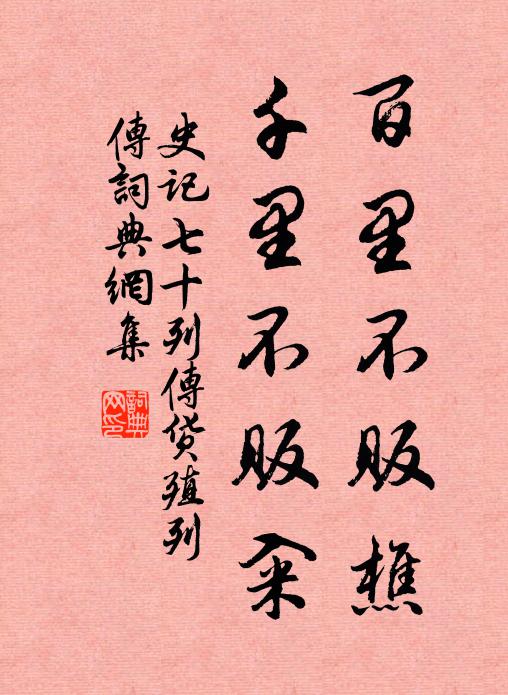 百里不販樵
千里不販籴
史记七十列傳货殖列
傳詞典網集
詞典
网印